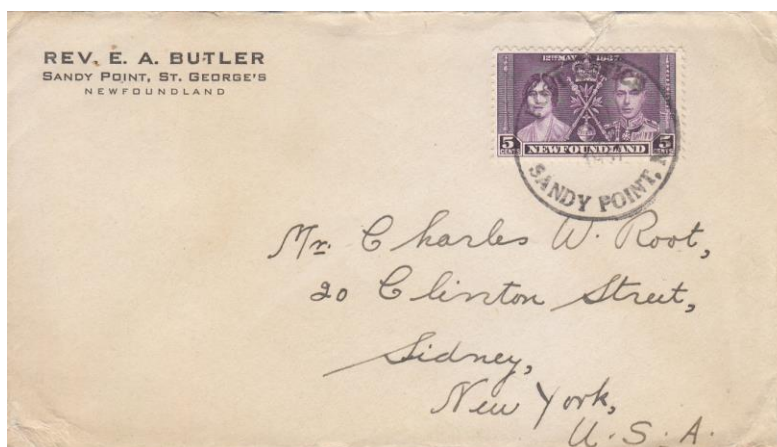 REV. E. A. BUTLER
SANDY POINT, ST. GEORGE'S
NEWFOUNDLAND
12TH MAY 1937
5 CENTS 5 CENTS
NEWFOUNDLAND
SANDY POINT, N
Mr. Charles W. Root,
20 Clinton Street,
Sidney,
New York,
U.S.A.